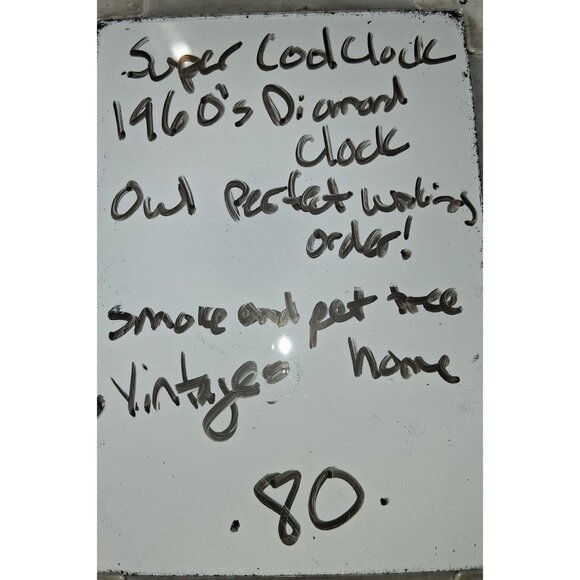 Super Cool Clock
1960's Diamond
Clock
Owl perfect working
order!
smoke and pet free
Vintage home
.80.